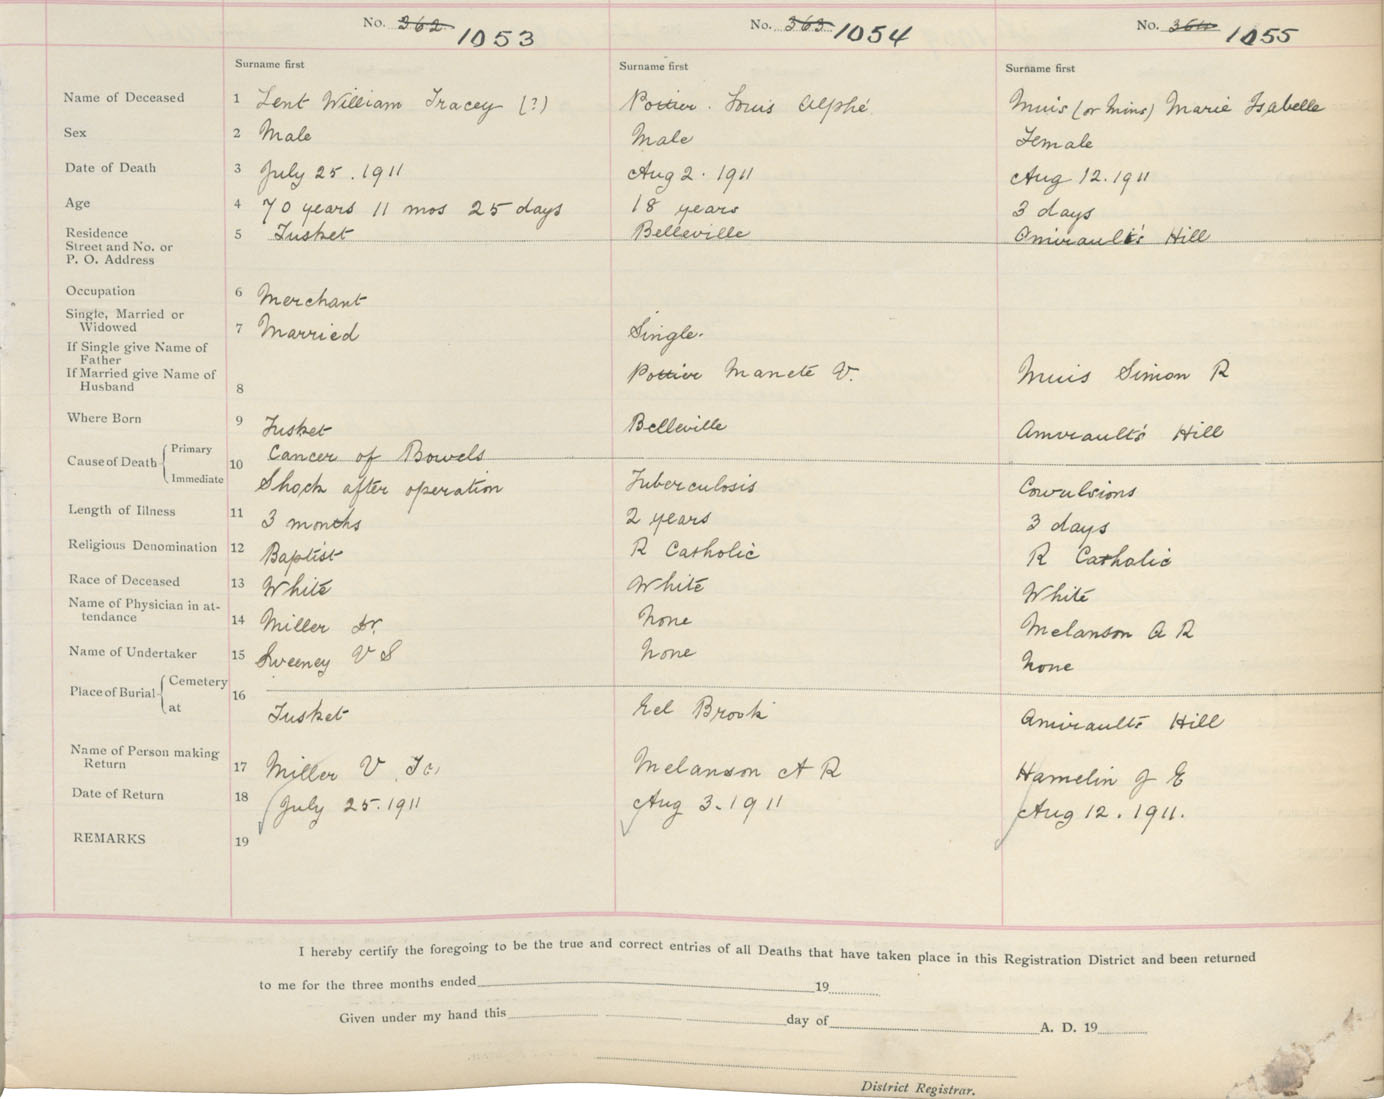 No. 362 1053 No. 363 1054 No. 364 1055
Surname first Surname first Surname first
Name of Deceased 1 Lent William Tracey (?) Pottier. Louis Alphé Muis (or Mins) Marie Isabelle
Sex 2 Male Male Female
Date of Death 3 July 25. 1911 Aug 2. 1911 Aug 12. 1911
Age 4 70 years 11 mos 25 days 18 years 3 days
Residence 5 Tusket Belleville Amirault's Hill
Street and No. or
P. O. Address
Occupation 6 Merchant
Single, Married or
Widowed 7 Married Single.
If Single give Name of
Father
If Married give Name of Pottier Mancté V. Muis Simon R
Husband 8
Where Born 9 Tusket Belleville Amirault's Hill
Cause of Death Primary 10 Cancer of Bowels
Immediate Shock after operation Tuberculosis Convulsions
Length of Illness 11 3 months 2 years 3 days
Religious Denomination 12 Baptist R Catholic R Catholic
Race of Deceased 13 White White White
Name of Physician in at-
tendance 14 Miller Dr. None Melanson A R
Name of Undertaker 15 Sweeney V S None None
Place of Burial Cemetery 16
at Tusket Eel Brook Amiraults Hill
Name of Person making
Return 17 Miller V Melanson A R Hamelin J E
Date of Return 18 July 25. 1911 Aug 3. 1911 Aug 12. 1911.
REMARKS 19
I hereby certify the foregoing to be the true and correct entries of all Deaths that have taken place in this Registration District and been returned
to me for the three months ended 19
Given under my hand this day of A. D. 19
District Registrar.